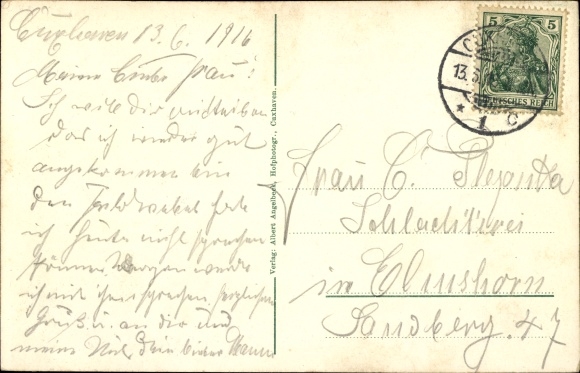 Cuxhaven 13.6.1916
Meine liebe Frau!
Ich will dir mitteilen
das ich wieder gut
angekommen bin
den Feldwebel habe
ich heute nicht sprechen
können Morgen werde
ich mit ihm sprechen herzlichen
Gruß u. an die
meine dein lieber Mann
Verlag: Albert Angelbeck, Hofphotogr., Cuxhaven.
5 5
DEUTSCHES REICH
CUX
13.
* 1 C
Frau C.
Schlachterei
in Elmshorn
Sandberg. 47